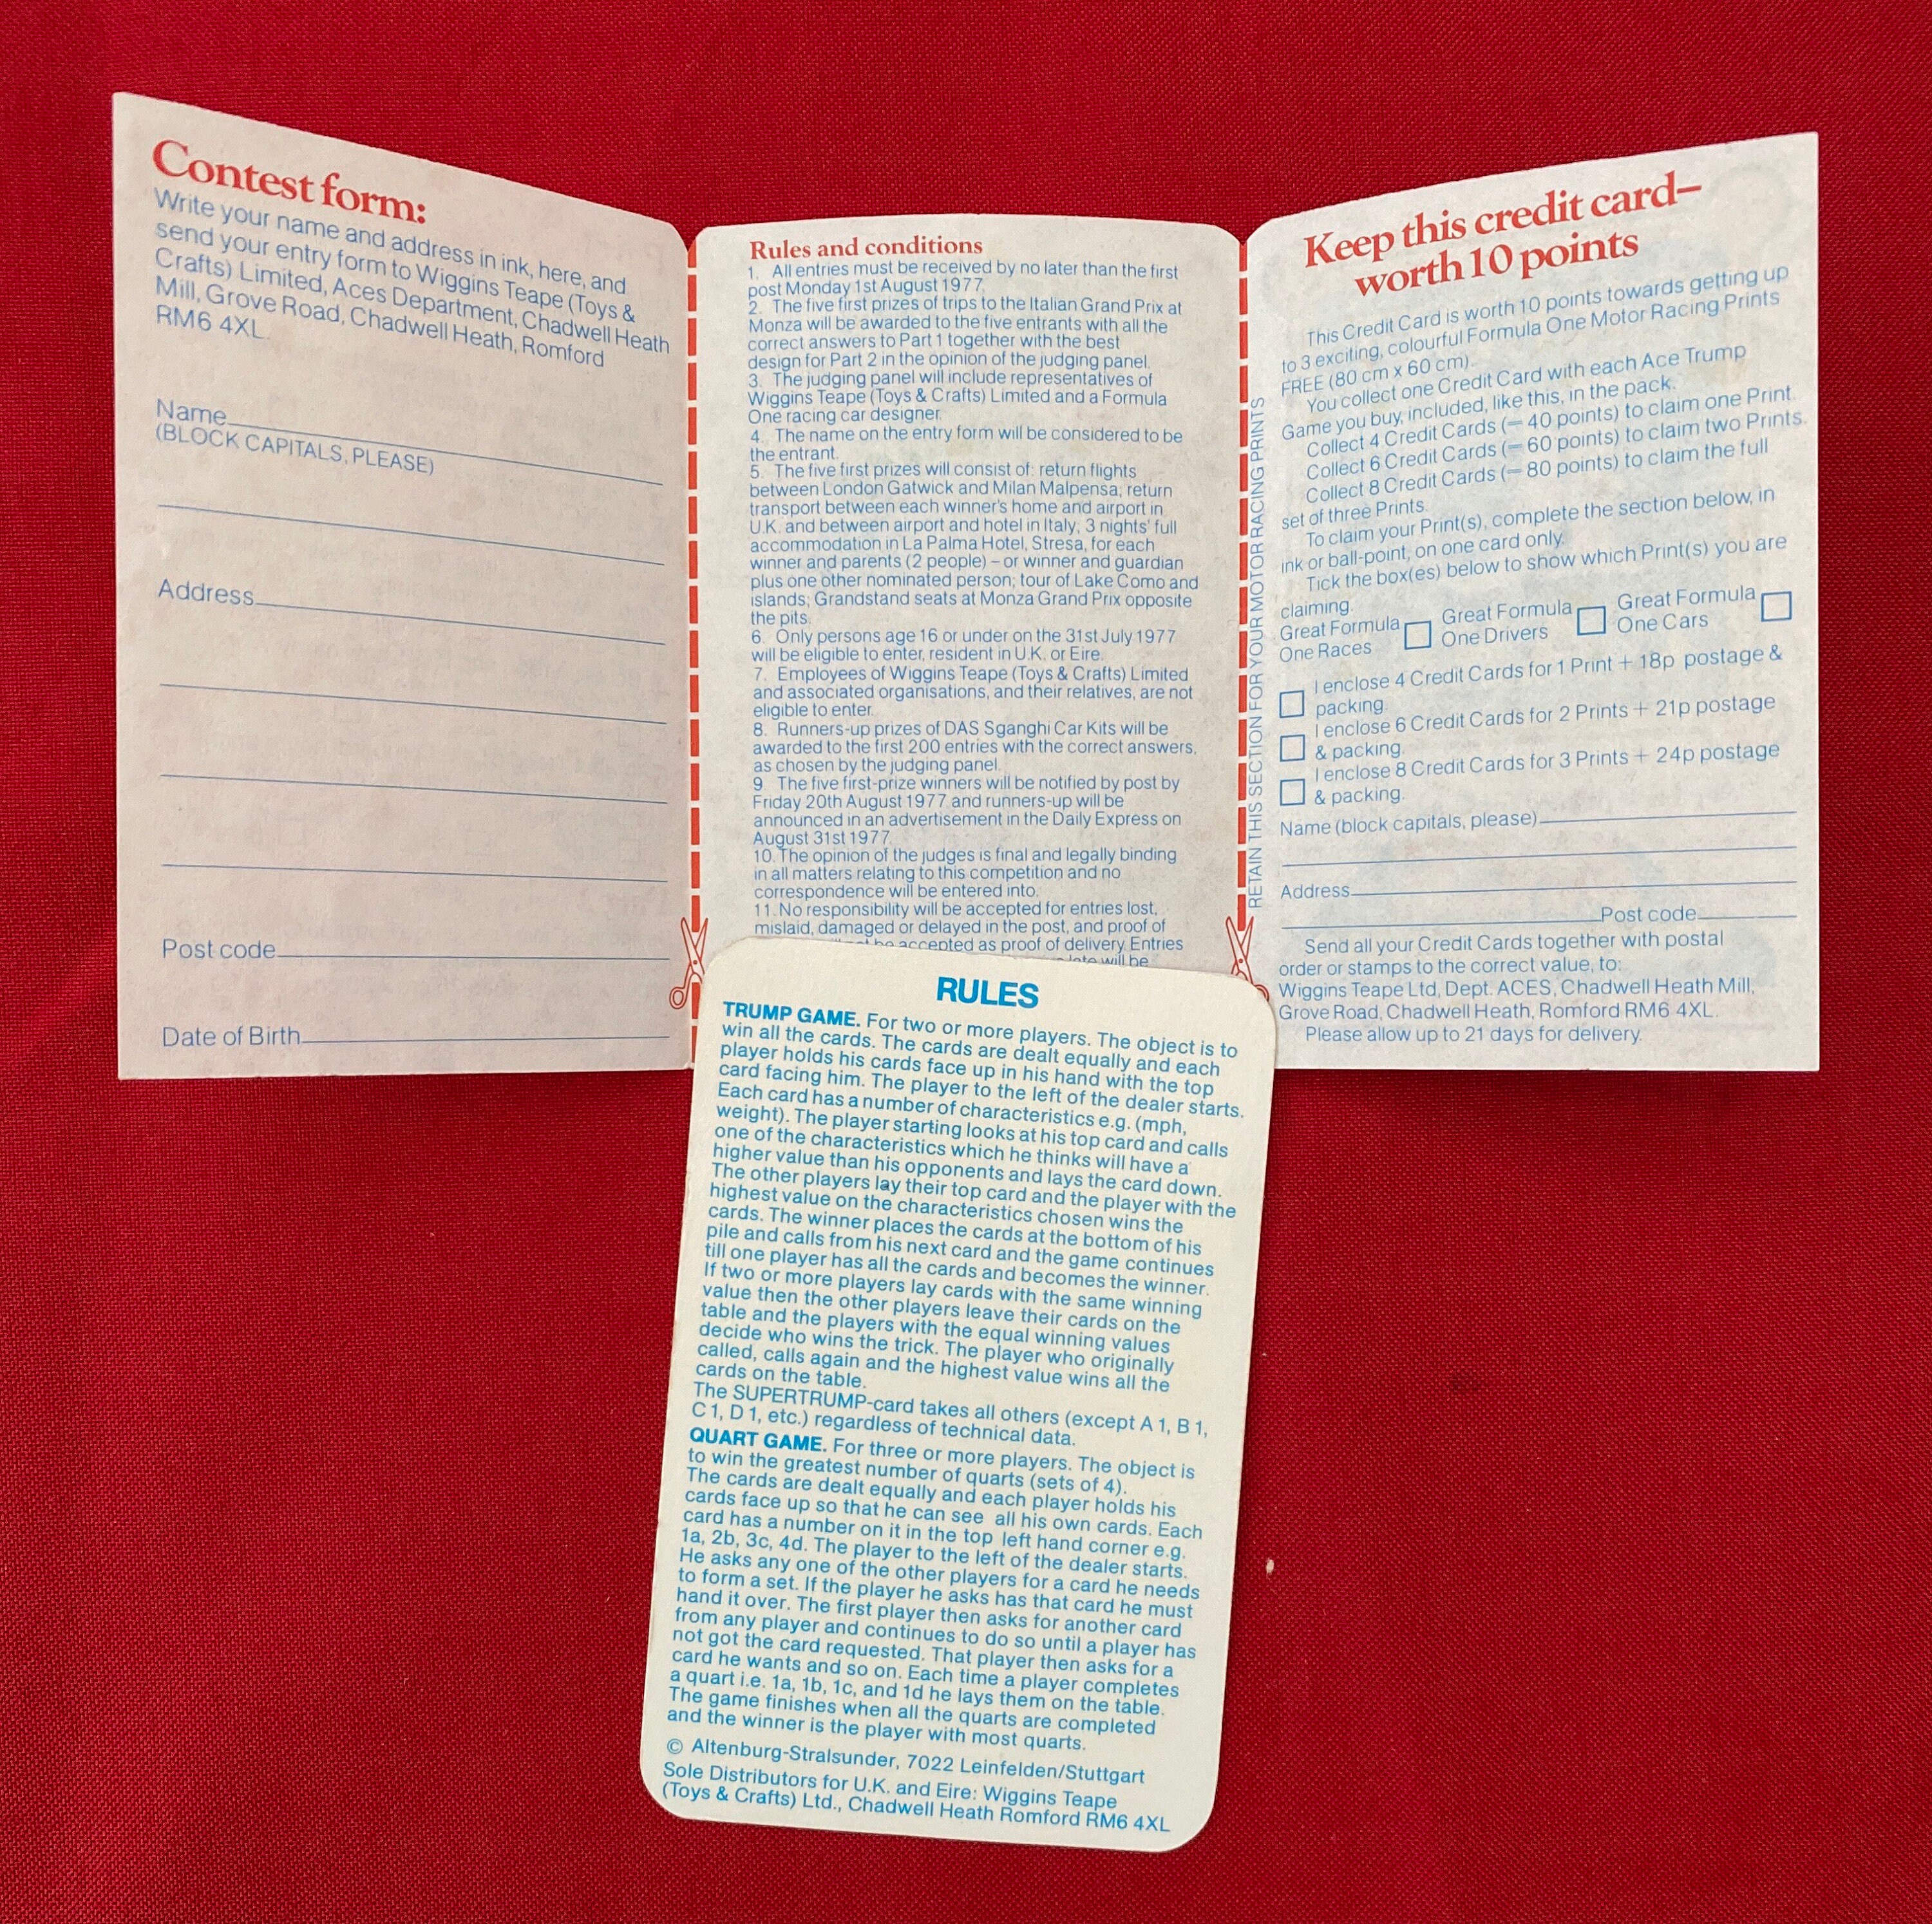 Contest form:
Write your name and address in ink, here, and
send your entry form to Wiggins Teape (Toys &
Crafts) Limited, Aces Department, Chadwell Heath
Mill, Grove Road, Chadwell Heath, Romford
RM6 4XL.
Name
(BLOCK CAPITALS, PLEASE)
Address
Post code
Date of Birth
Rules and conditions
1. All entries must be received by no later than the first
post Monday 1st August 1977.
2. The five first prizes of trips to the Italian Grand Prix at
Monza will be awarded to the five entrants with all the
correct answers to Part 1 together with the best
design for Part 2 in the opinion of the judging panel.
3. The judging panel will include representatives of
Wiggins Teape (Toys & Crafts) Limited and a Formula
One racing car designer.
4. The name on the entry form will be considered to be
the entrant.
5. The five first prizes will consist of: return flights
between London Gatwick and Milan Malpensa; return
transport between each winner's home and airport in
U.K. and between airport and hotel in Italy, 3 nights' full
accommodation in La Palma Hotel, Stresa, for each
winner and parents (2 people) – or winner and guardian
plus one other nominated person; tour of Lake Como and
islands; Grandstand seats at Monza Grand Prix opposite
the pits.
6. Only persons age 16 or under on the 31st July 1977
will be eligible to enter, resident in U.K. or Eire.
7. Employees of Wiggins Teape (Toys & Crafts) Limited
and associated organisations, and their relatives, are not
eligible to enter.
8. Runners-up prizes of DAS Sganghi Car Kits will be
awarded to the first 200 entries with the correct answers,
as chosen by the judging panel.
9. The five first-prize winners will be notified by post by
Friday 20th August 1977 and runners-up will be
announced in an advertisement in the Daily Express on
August 31st 1977.
10. The opinion of the judges is final and legally binding
in all matters relating to this competition and no
correspondence will be entered into.
11. No responsibility will be accepted for entries lost,
mislaid, damaged or delayed in the post, and proof of
be accepted as proof of delivery. Entries
will be
RETAIN THIS SECTION FOR YOUR MOTOR RACING PRINTS
Keep this credit card–
worth 10 points
This Credit Card is worth 10 points towards getting up
to 3 exciting, colourful Formula One Motor Racing Prints
FREE (80 cm x 60 cm).
You collect one Credit Card with each Ace Trump
Game you buy, included, like this, in the pack.
Collect 4 Credit Cards (= 40 points) to claim one Print.
Collect 6 Credit Cards (= 60 points) to claim two Prints.
Collect 8 Credit Cards (= 80 points) to claim the full
set of three Prints.
To claim your Print(s), complete the section below, in
ink or ball-point, on one card only.
Tick the box(es) below to show which Print(s) you are
claiming.
Great Formula One Races
Great Formula One Drivers
Great Formula One Cars
I enclose 4 Credit Cards for 1 Print + 18p postage &
packing.
I enclose 6 Credit Cards for 2 Prints + 21p postage
& packing.
I enclose 8 Credit Cards for 3 Prints + 24p postage
& packing.
Name (block capitals, please)
Address
Post code
Send all your Credit Cards together with postal
order or stamps to the correct value, to:
Wiggins Teape Ltd, Dept. ACES, Chadwell Heath Mill,
Grove Road, Chadwell Heath, Romford RM6 4XL.
Please allow up to 21 days for delivery.
RULES
TRUMP GAME. For two or more players. The object is to
win all the cards. The cards are dealt equally and each
player holds his cards face up in his hand with the top
card facing him. The player to the left of the dealer starts.
Each card has a number of characteristics e.g. (mph,
weight). The player starting looks at his top card and calls
one of the characteristics which he thinks will have a
higher value than his opponents and lays the card down.
The other players lay their top card and the player with the
highest value on the characteristics chosen wins the
cards. The winner places the cards at the bottom of his
pile and calls from his next card and the game continues
till one player has all the cards and becomes the winner.
If two or more players lay cards with the same winning
value then the other players leave their cards on the
table and the players with the equal winning values
decide who wins the trick. The player who originally
called, calls again and the highest value wins all the
cards on the table.
The SUPERTRUMP-card takes all others (except A 1, B 1,
C 1, D 1, etc.) regardless of technical data.
QUART GAME. For three or more players. The object is
to win the greatest number of quarts (sets of 4).
The cards are dealt equally and each player holds his
cards face up so that he can see all his own cards. Each
card has a number on it in the top left hand corner e.g.
1a, 2b, 3c, 4d. The player to the left of the dealer starts.
He asks any one of the other players for a card he needs
to form a set. If the player he asks has that card he must
hand it over. The first player then asks for another card
from any player and continues to do so until a player has
not got the card requested. That player then asks for a
card he wants and so on. Each time a player completes
a quart i.e. 1a, 1b, 1c, and 1d he lays them on the table.
The game finishes when all the quarts are completed
and the winner is the player with most quarts.
© Altenburg-Stralsunder, 7022 Leinfelden/Stuttgart
Sole Distributors for U.K. and Eire: Wiggins Teape
(Toys & Crafts) Ltd., Chadwell Heath Romford RM6 4XL